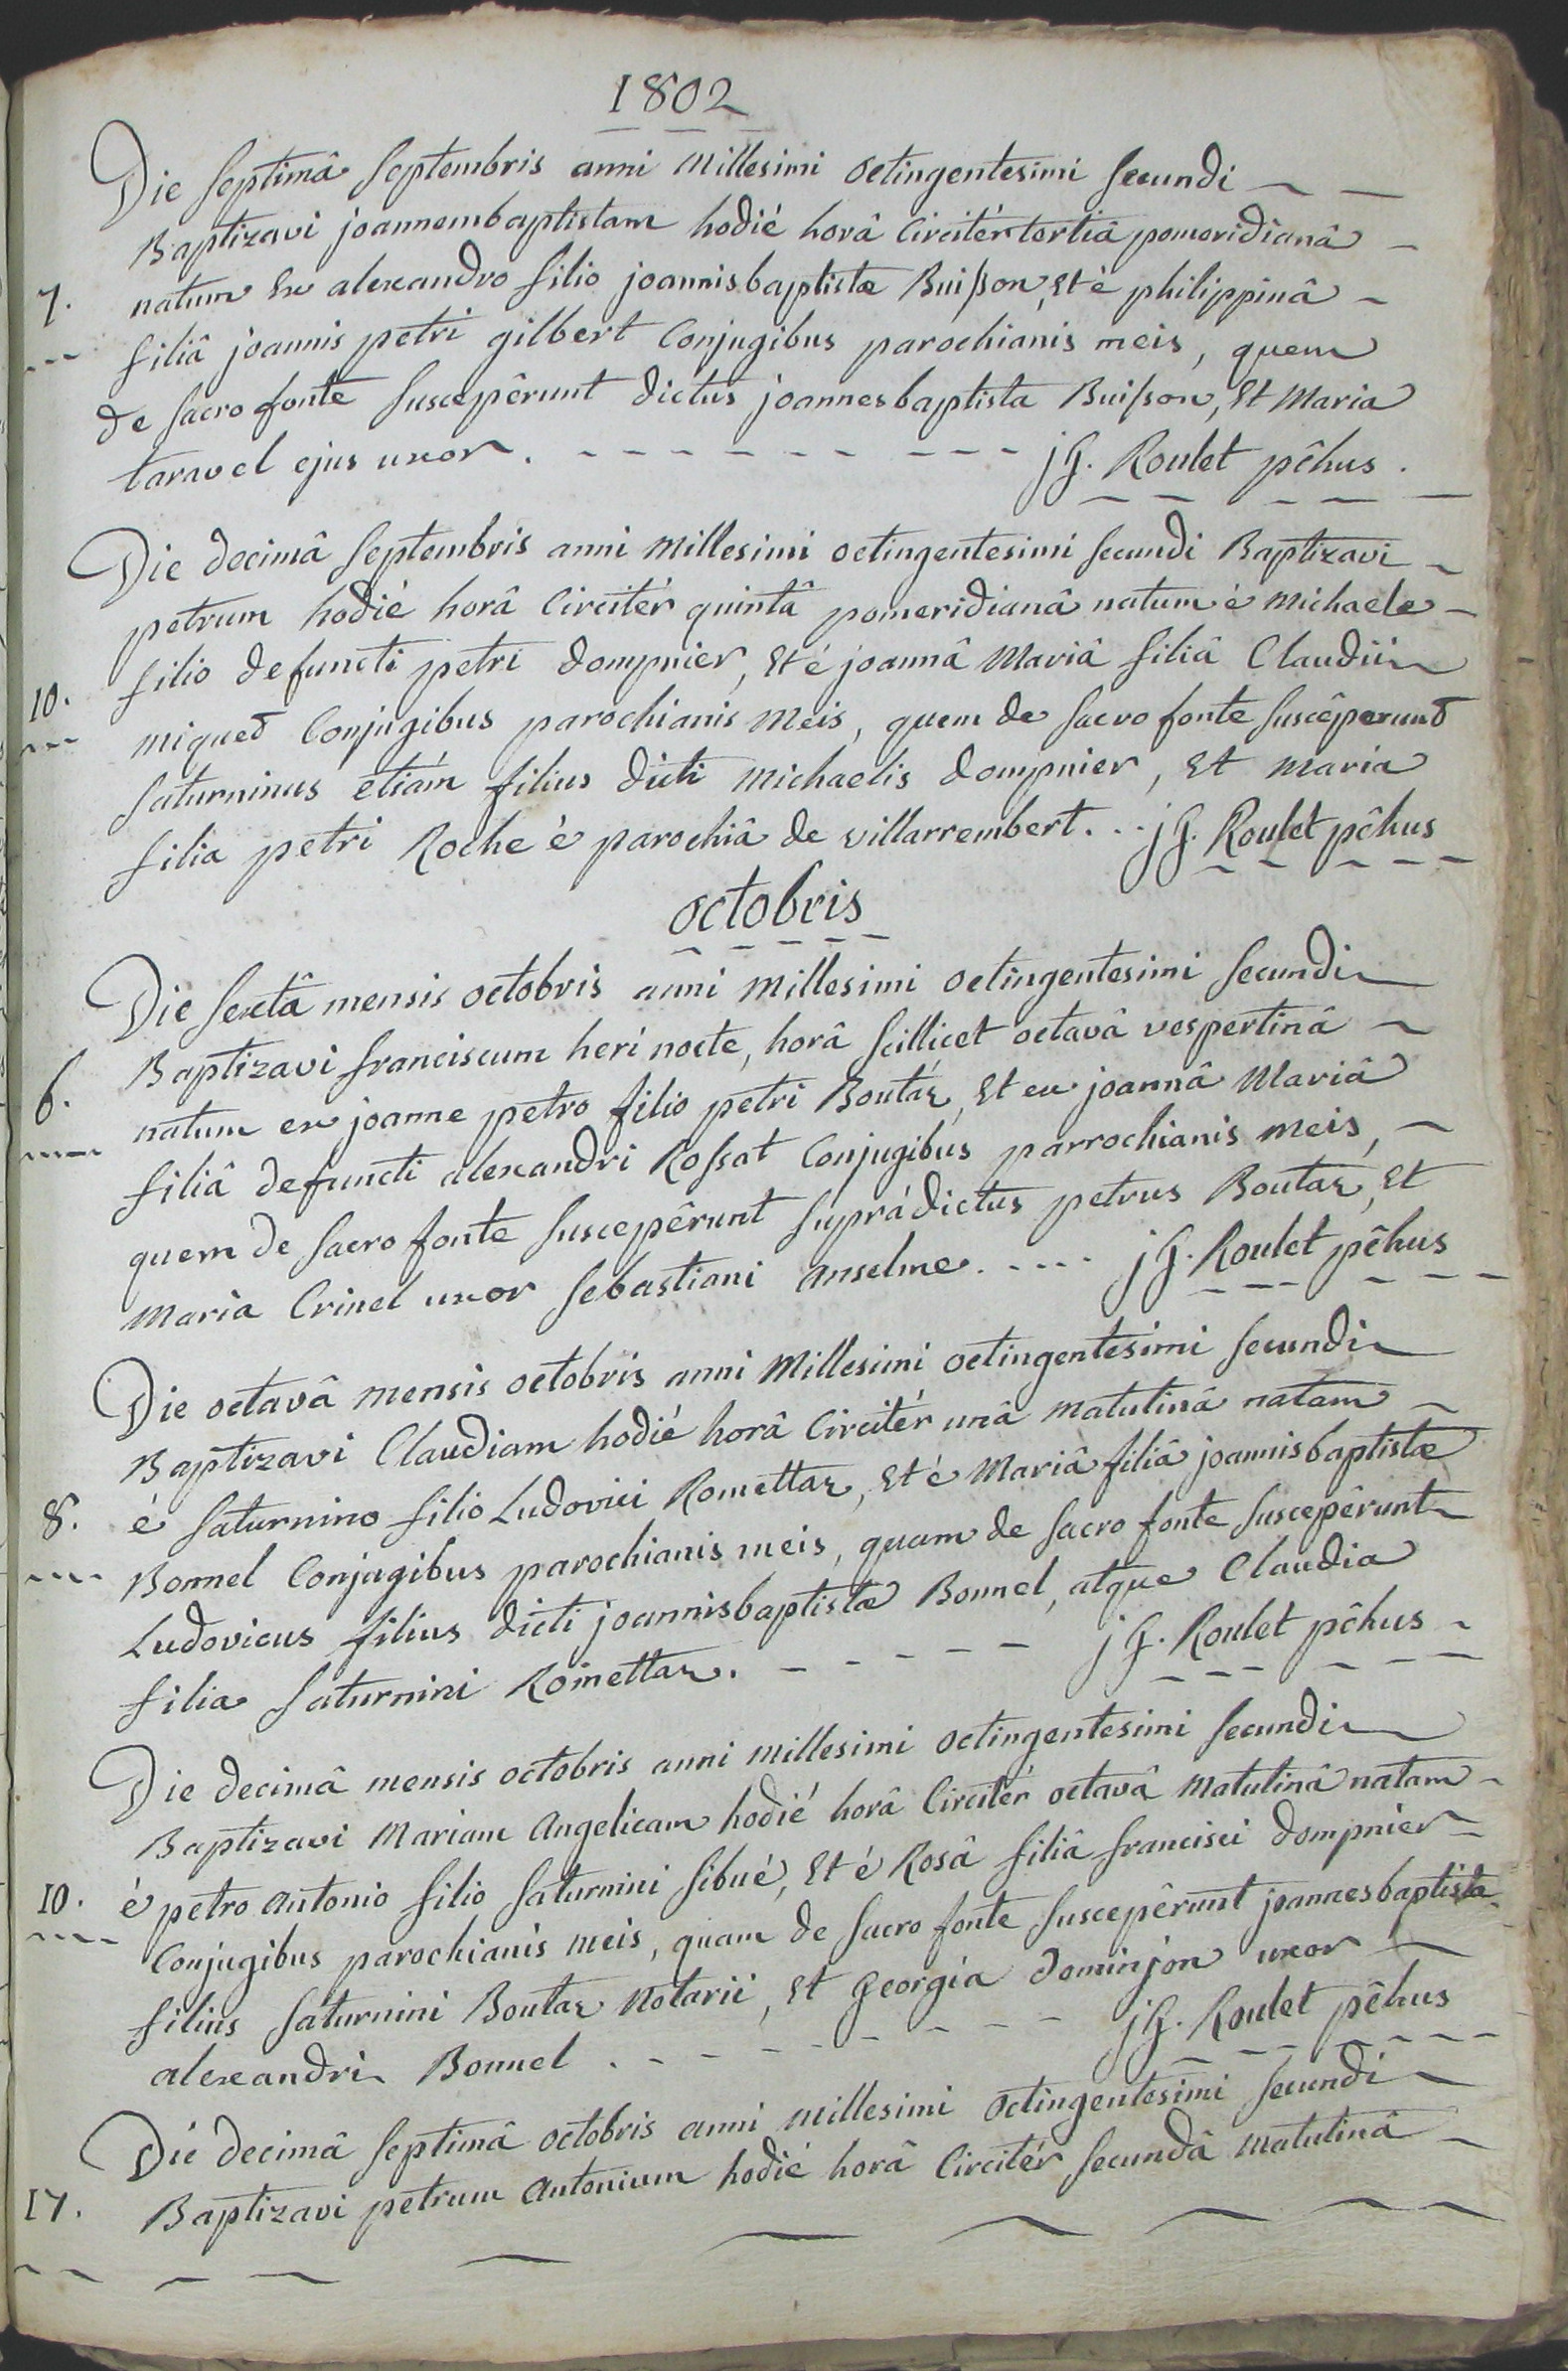 1802
Die septimâ septembris anni millesimi octingentesimi secundi
Baptizavi joannembaptistam hodié horâ circitér tertiâ pomeridianâ
7. natum ex alexandro filio joannisbaptistæ Buisson, et è philippinâ
filiâ joannis petri gilbert conjugibus parochianis meis, quem
de sacro fonte suscepêrunt dictus joannesbaptista Buisson, et Maria
taravel ejus uxor. jG. Roulet pêhus.
Die decimâ septembris anni millesimi octingentesimi secundi Baptizavi
petrum hodié horâ circitér quintâ pomeridianâ natum é michaele
filio defuncti petri dompnier, et é joannâ Mariâ filiâ Claudii
10. miqued conjugibus parochianis meis, quem de sacro fonte suscêperund
saturninus etiám filius dicti michaelis dompnier, et maria
filia petri Roche é parochiâ de villarrembert... jG. Roulet pêhus
octobris
Die sextâ mensis octobris anni millesimi octingentesimi secundi
Baptizavi franciscum heri nocte, horâ scillicet octavâ vespertinâ
6. natum ex joanne petro filio petri Boutaz, et ex joannâ Mariâ
filiâ defuncti alexandri Rossat conjugibus parrochianis meis,
quem de sacro fonte suscepêrunt suprádictus petrus Boutaz, et
Maria Crinel uxor sebastiani anselme..... jG. Roulet pêhus
Die octavâ mensis octobris anni Millesimi octingentesimi secundi
Baptizavi Claudiam hodié horâ circitér unâ matutinâ natam
8. é saturnino filio Ludovici Romettaz, et é Mariâ filiâ joannisbaptistæ
Bonnel conjugibus parochianis meis, quam de sacro fonte suscepêrunt
Ludovicus filius dicti joannisbaptistæ Bonnel, atque Claudia
filia saturnini Romettaz. jG. Roulet pêhus
Die decimâ mensis octobris anni millesimi octingentesimi secundi
Baptizavi Mariam Angelicam hodié horâ circitér octavâ matutinâ natam
10. é petro antonio filio saturnini sibué, et é Rosâ filiâ francisci dompnier
conjugibus parochianis meis, quam de sacro fonte suscepêrunt joannesbaptista
filius saturnini Boutaz notarii, et georgia dominjon uxor
alexandri Bonnel. jG. Roulet pêhus
Dié decimâ septimâ octobris anni millesimi octingentesimi secundi
17. Baptizavi petrum antonium hodié horâ circitér secundâ matutinâ